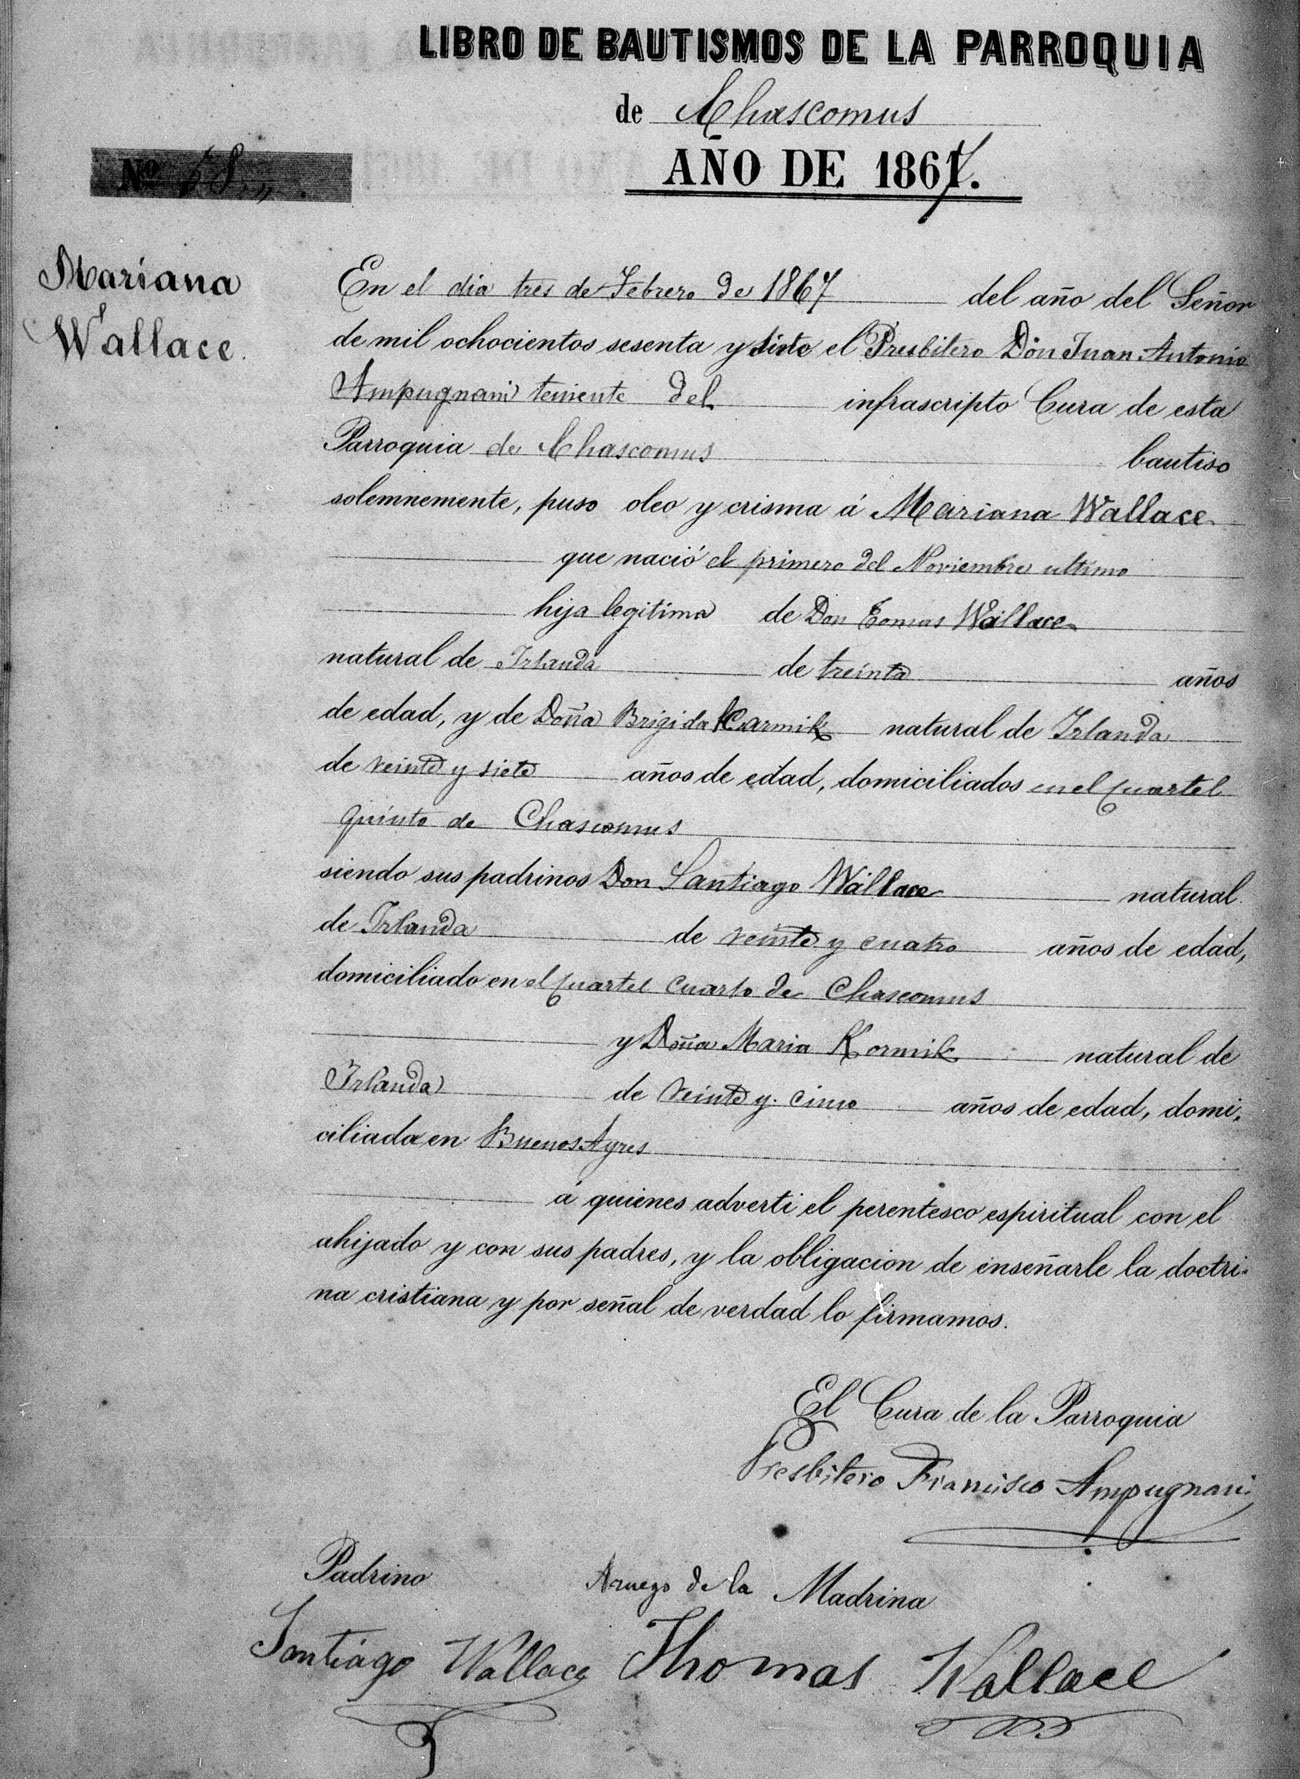 LIBRO DE BAUTISMOS DE LA PARROQUIA
de Chascomus
AÑO DE 1867.
Nº
Mariana
Wallace.
En el dia tres de Febrero de 1867 del año del Señor
de mil ochocientos sesenta y siete el Presbitero Don Juan Antonio
Ampugnani teniente del infrascripto Cura de esta
Parroquia de Chascomus bautiso
solemnemente, puso oleo y crisma á Mariana Wallace
que nació el primero del Noviembre ultimo
hija legitima de Don Tomas Wallace
natural de Irlanda de treinta años
de edad, y de Doña Brigida Karmik natural de Irlanda
de veinte y siete años de edad, domiciliados en el Cuartel
quinto de Chascomus
siendo sus padrinos Don Santiago Wallace natural
de Irlanda de veinte y cuatro años de edad,
domiciliado en el Cuartel Cuarto de Chascomus
y Doña Maria Kormik natural de
Irlanda de veinte y cinco años de edad, domi-
ciliada en Buenos Ayres
á quienes adverti el perentesco espiritual con el
ahijado y con sus padres, y la obligacion de enseñarle la doctri-
na cristiana y por señal de verdad lo firmamos.
El Cura de la Parroquia
Presbitero Francisco Ampugnani
Padrino Aruego de la Madrina
Santiago Wallace Thomas Wallace